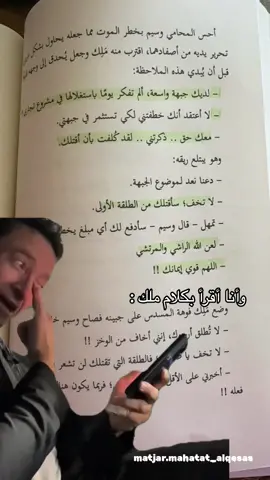 أحس المحامي وسيم بخطر الموت مما جعله يحاول بشكل
تحرير يديه من أصفادهما، اقترب منه مَلِك وجعل يُحدق إلى
قبل أن يُبدي هذه الملاحظة:
– لديك جبهة واسعة، ألم تفكر يومًا باستغلالها في مشروع
– لا أعتقد أنك خطفتني لكي تستثمر في جبهتي.
– معك حق .. ذكرتني .. لقد كُلفت بأن أقتلك.
وهو يبتلع ريقه:
– دعنا نعد لموضوع الجبهة.
– لا تخف؛ سأقتلك من الطلقة الأولى.
– تمهل – قال وسيم – سأدفع لك أي مبلغ
– لعن الله الراشي والمرتشي
– اللهم قوي إيمانك !!
وأنا أقرأ بكلام ملك :
وضع مَلِك فوهة المسدس على جبينه فصاح وسيم
– لا تُطلق إنني أخاف من الوخز !!
– لا تخف يا فالطلقة التي تقتلك لن تشعر
– أخبرني على الأقل فربما يكون
فعله !!
matjar.mahatat_alqesas